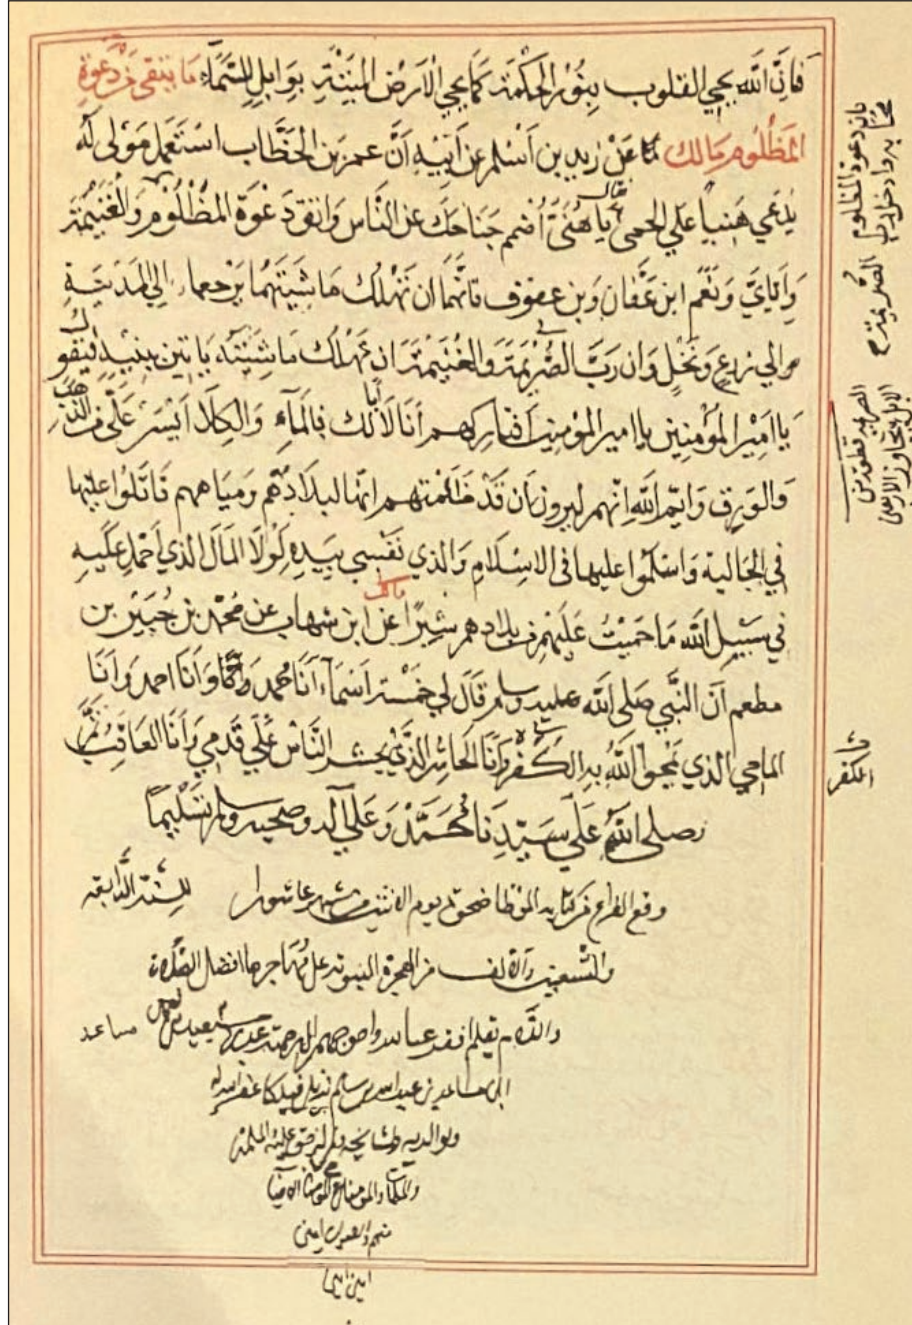 فان الله يحي القلوب بنور الحكمة كما يحي الارض الميتة بوابل السماء ما يتقى من دعوة
المظلوم مالك عن زيد بن اسلم عن ابيه ان عمر بن الخطاب استعمل مولى له
يدعى هنيا على الحمى فقال يا هني اضمم جناحك عن الناس واتق دعوة المظلوم والغنيمة
واياي ونعم ابن عفان وبن عوف فانهما ان تهلك ماشيتهما يرجعا الى المدينة
والي زرع ونخل وان رب الصريمة والغنيمة ان تهلك ماشيته ياتين ببنيه فيقول
يا امير المؤمنين يا امير المومنين افتاركهم انا لا ابا لك فالماء والكلا ايسر علي من الذهب
والورق وايم الله انهم ليرون ان قد ظلمتهم انها لبلادهم ومياههم قاتلوا عليها
في الجاهلية واسلموا عليها في الاسلام والذي نفسي بيده لولا المال الذي احمل عليه
في سبيل الله ما حميت عليهم من بلادهم شبرا مالك عن ابن شهاب عن محمد بن جبير بن
مطعم ان النبي صلى الله عليه وسلم قال لي خمسة اسماء انا محمد وانا احمد وانا
الماحي الذي يمحو الله به الكفر وانا الحاشر الذي يحشر الناس على قدمي وانا العاقب
وصلى الله على سيدنا محمد وعلى اله وصحبه وسلم تسليما
وقع الفراغ من كتابة الموطا ضحوة يوم من شهر عاشورا للسنة الرابعة
والتسعين والالف من الهجرة النبوية على مهاجرها افضل الصلاة
والسلام بقلم افقر عباد الله واحوجهم الى رحمته سعيد بن مساعد
ابن مساعد بن عبد الله بن سالم غفر الله له
ولوالديه ولمشايخه
والمسلمات والمومنين والمومنات الاحيا
منهم والاموات امين
امين امين
باب دعوة المظلوم
الصريمة
الكفر